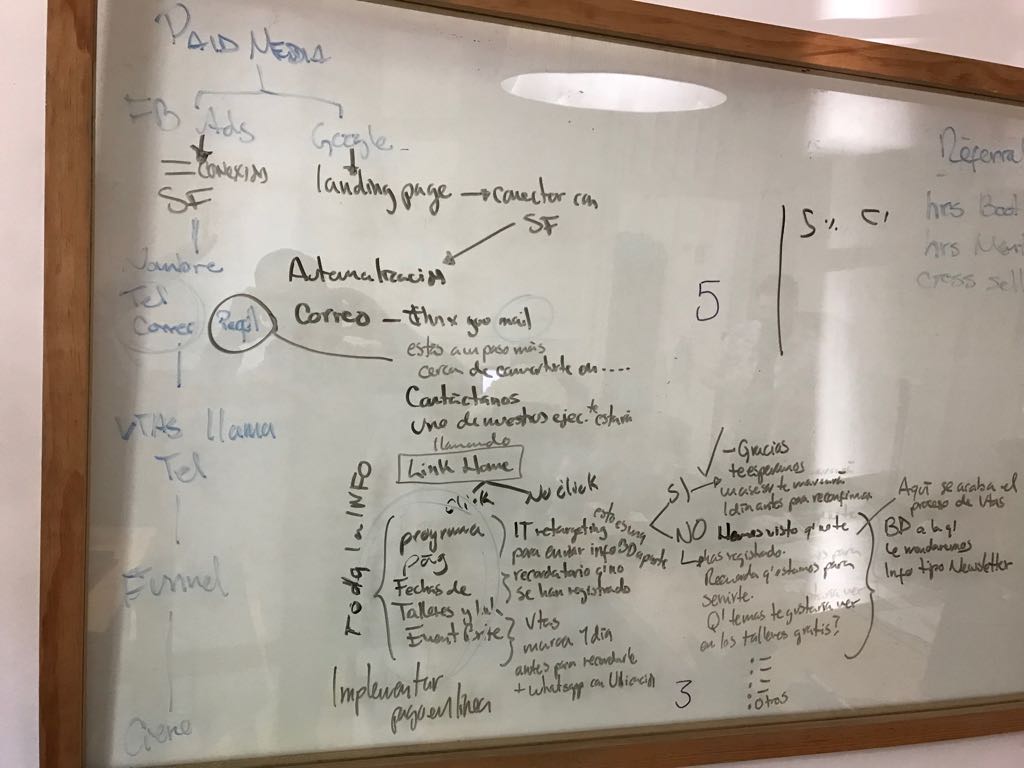 PAID MEDIA
FB Ads
Google
CONEXIÓN
SF
landing page → conectar con
SF
Nombre
Tel
Correo
Automatización
Correo - thnx you mail
estas a un paso más
cerca de convertirte en ....
Contáctanos
Uno de nuestros ejec. te estaría
llamando
Link Home
click
No click
VTAS llama
Tel
Funnel
Cierre
Toda la INFO
programa
pag
Fechas de
Talleres y link
Event Brite
Implementar
pago en línea
IT retargeting
para enviar info BD aparte
recordatorio q' no
se han registrado
Vtas
marca 1 día
antes para recordarle
+ Whatsapp con Ubicación
SI
- Gracias
te esperamos
un asesor te marcará
1 día antes para reconfirmar
NO
Hemos visto q' no te
has registrado.
Recuerda q' estamos para
servirte.
Q' temas te gustaría ver
en los talleres gratis?
otros
Aquí se acaba el
proceso de Vtas
BD a la q'
le mandaremos
Info tipo Newsletter
5
3
5%
Referral
hrs Boot
hrs
cross sell